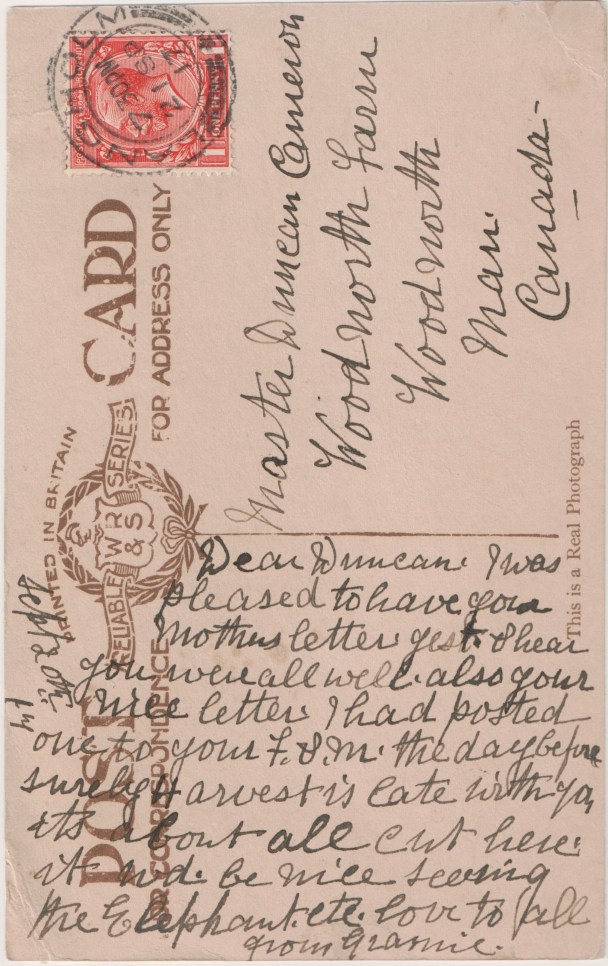 POST CARD
PRINTED IN BRITAIN
RELIABLE WR & S SERIES
FOR CORRESPONDENCE
FOR ADDRESS ONLY
ONE PENNY
Master Duncan Cameron
Woodnorth Farm
Woodnorth
Man.
Canada-
This is a Real Photograph
Dear Duncan. I was
pleased to have your
Mothers letter yest. & hear
you were all well. also your
nice letter. I had posted
one to your F. & M. the day before
surely Harvest is late with you
its about all cut here.
it wd. be nice seeing
the Elephant. etc. love to all
from Grannie.